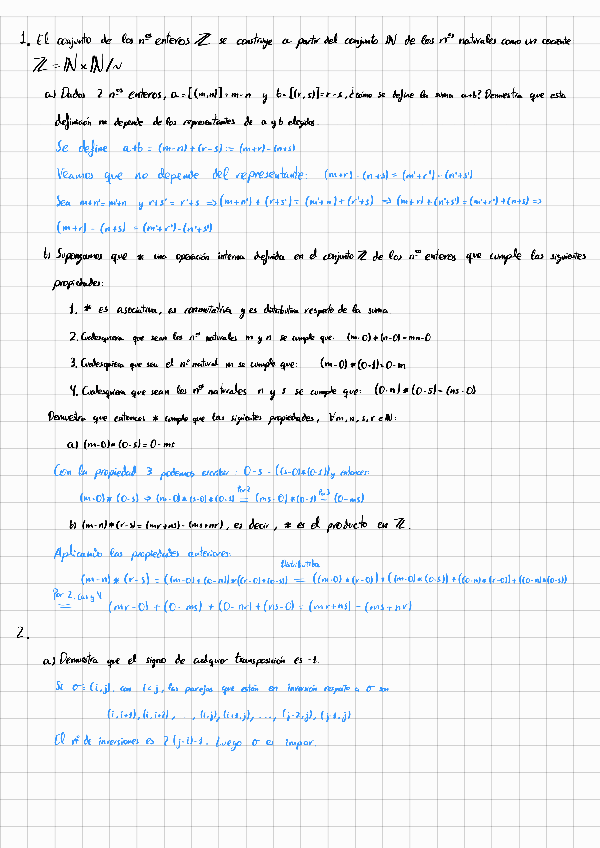 1. El conjunto de los nºs enteros ℤ se construye a partir del conjunto ℕ de los nºs naturales como un cociente
ℤ = ℕ×ℕ/~
a) Dados 2 nºs enteros, a = [(m,n)] = m-n y b = [(r,s)] = r-s, ¿cómo se define la suma a+b? Demuestra que esta
definición no depende de los representantes de a y b elegidos.
Se define a+b = (m-n)+(r-s) := (m+r)-(n+s)
Veamos que no depende del representante: (m+r)-(n+s) = (m'+r')-(n'+s')
Sea m+n' = m'+n y r+s' = r'+s ⇒ (m+n')+(r+s') = (m'+n)+(r'+s) ⇒ (m+r)+(n'+s') = (m'+r')+(n+s) ⇒
(m+r)-(n+s) = (m'+r')-(n'+s')
b) Supongamos que * una operación interna definida en el conjunto ℤ de los nºs enteros que cumple las siguientes
propiedades:
1. * es asociativa, es conmutativa y es distributiva respecto de la suma
2. Cualesquiera que sean los nºs naturales m y n se cumple que: (m-0)*(n-0)=mn-0
3. Cualesquiera que sea el nº natural m se cumple que: (m-0)*(0-1)=0-m
4. Cualesquiera que sean los nºs naturales n y s se cumple que: (0-n)*(0-s)=(ns-0)
Demuestra que entonces * cumple que las siguientes propiedades, ∀m,n,s,r∈ℕ:
a) (m-0)*(0-s)=0-ms
Con la propiedad 3 podemos escribir: 0-s = ((s-0)*(0-1)) y entonces:
(m-0)*(0-s) ⇒ (m-0)*(s-0)*(0-1) =(Por 2) (ms-0)*(0-1) =(Por 3) (0-ms)
b) (m-n)*(r-s)=(mr+ns)-(ms+nr), es decir, * es el producto en ℤ.
Aplicamos las propiedades anteriores:
(m-n)*(r-s) = ((m-0)+(0-n))*((r-0)+(0-s)) =(Distributiva) ((m-0)*(r-0))+((m-0)*(0-s))+((0-n)*(r-0))+((0-n)*(0-s))
=(Por 2, a y 4) (mr-0)+(0-ms)+(0-nr)+(ns-0) = (mr+ns)-(ms+nr)
2.
a) Demuestra que el signo de cualquier transposición es -1.
Si σ=(i,j), con i<j, las parejas que están en inversión respecto a σ son
(i,i+1),(i,i+2),...,(i,j),(i+1,j),...,(j-2,j),(j-1,j)
El nº de inversiones es 2(j-i)-1. Luego σ es impar.